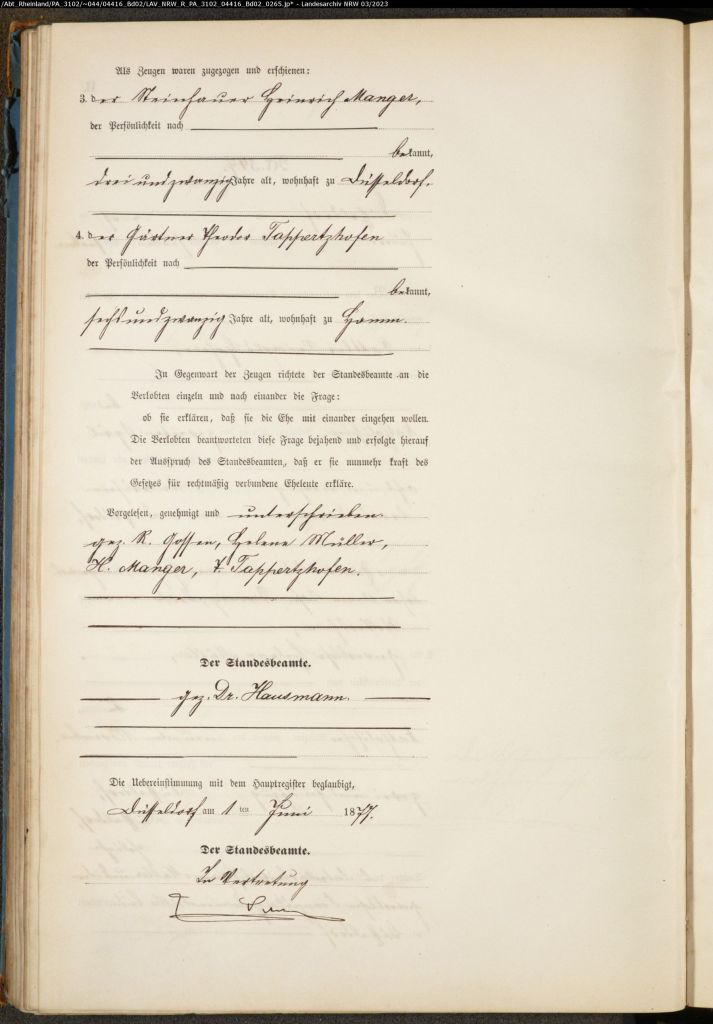 /Abt_Rheinland/PA_3102/~044/04416_Bd02/LAV_NRW_R_PA_3102_04416_Bd02_0265.jp* - Landesarchiv NRW 03/2023
Als Zeugen waren zugezogen und erschienen:
3. der Steinhauer Heinrich Manger,
der Persönlichkeit nach
bekannt,
drei und zwanzig Jahre alt, wohnhaft zu Düsseldorf.
4. der Gärtner Theodor Tappertzhofen
der Persönlichkeit nach
bekannt,
sechs und zwanzig Jahre alt, wohnhaft zu Hamm.
In Gegenwart der Zeugen richtete der Standesbeamte an die
Verlobten einzeln und nach einander die Frage:
ob sie erklären, daß sie die Ehe mit einander eingehen wollen.
Die Verlobten beantworteten diese Frage bejahend und erfolgte hierauf
der Ausspruch des Standesbeamten, daß er sie nunmehr kraft des
Gesetzes für rechtmäßig verbundene Eheleute erkläre.
Vorgelesen, genehmigt und unterschrieben
gez. R. Gossen, Helene Müller,
H. Manger, T. Tappertzhofen.
Der Standesbeamte.
gez. Dr. Hausmann.
Die Uebereinstimmung mit dem Hauptregister beglaubigt,
Düsseldorf am 1 ten Juni 1877.
Der Standesbeamte.
In Vertretung